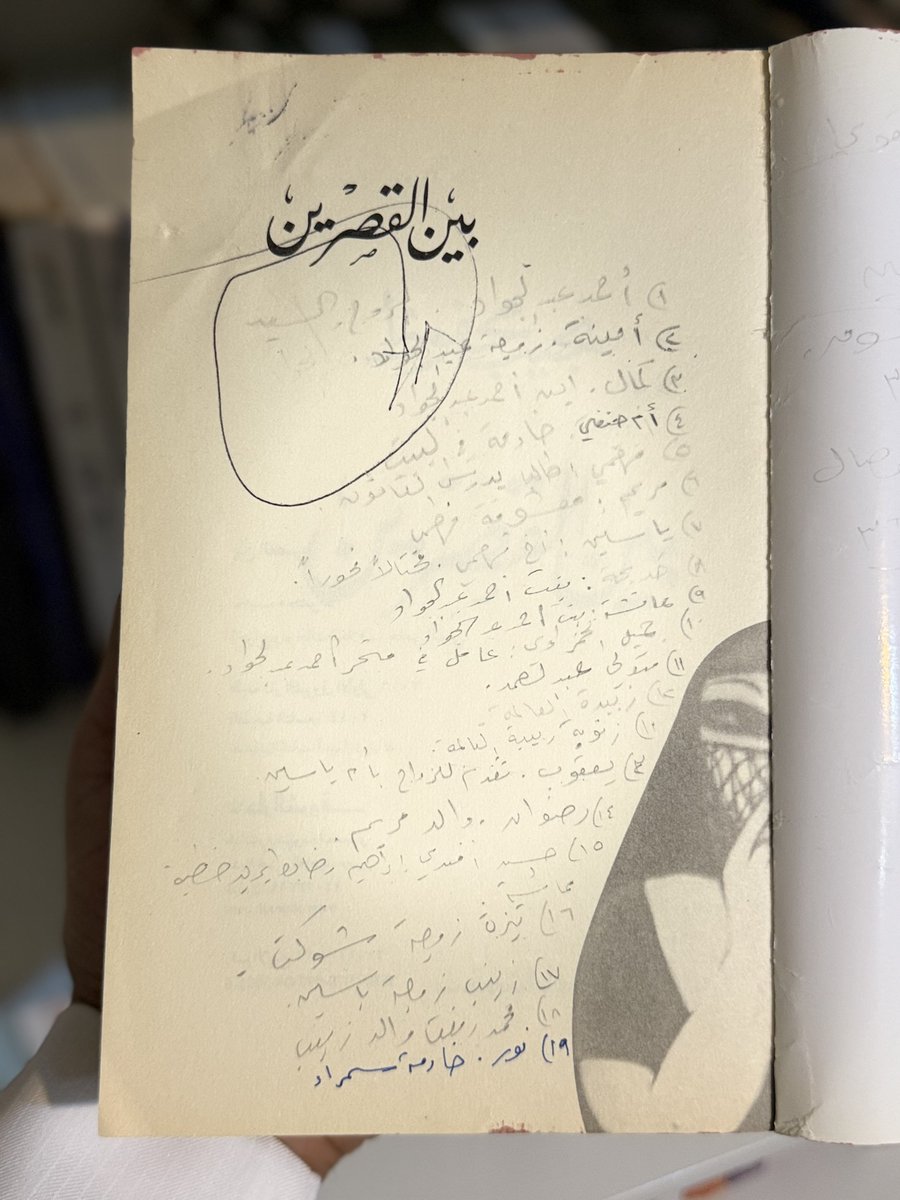 بين القصرين
١) أحمد عبد الجواد. الزوج السيد
٢) أمينة. زوجة عبد الجواد.
٣) كمال. ابن أحمد عبد الجواد
٤) أم حنفي. خادمة في البيت
٥) فهمي يدرس القانون
٦) مريم: معشوقة فهمي
٧) ياسين: أخ فهمي. مختالاً فخوراً.
٨) خديجة: بنت أحمد عبد الجواد
٩) عائشة: بنت أحمد عبد الجواد
١٠) جميل الحمزاوي: عامل في متجر أحمد عبد الجواد.
١١) متولي عبد الصمد.
١٢) زبيدة العالمة
١٣) زنوبة ربيبة العالمة
١٣) يعقوب. تقدم للزواج بأم ياسين.
١٤) رضوان. والد مريم.
١٥) حسن افندي إبراهيم ضابط يريد خطبة
عائشة
١٦) تيزة زوجة شوكت
١٧) زينب زوجة ياسين
١٨) محمد عفت والد زينب
١٩) نور. خادمة سمراء